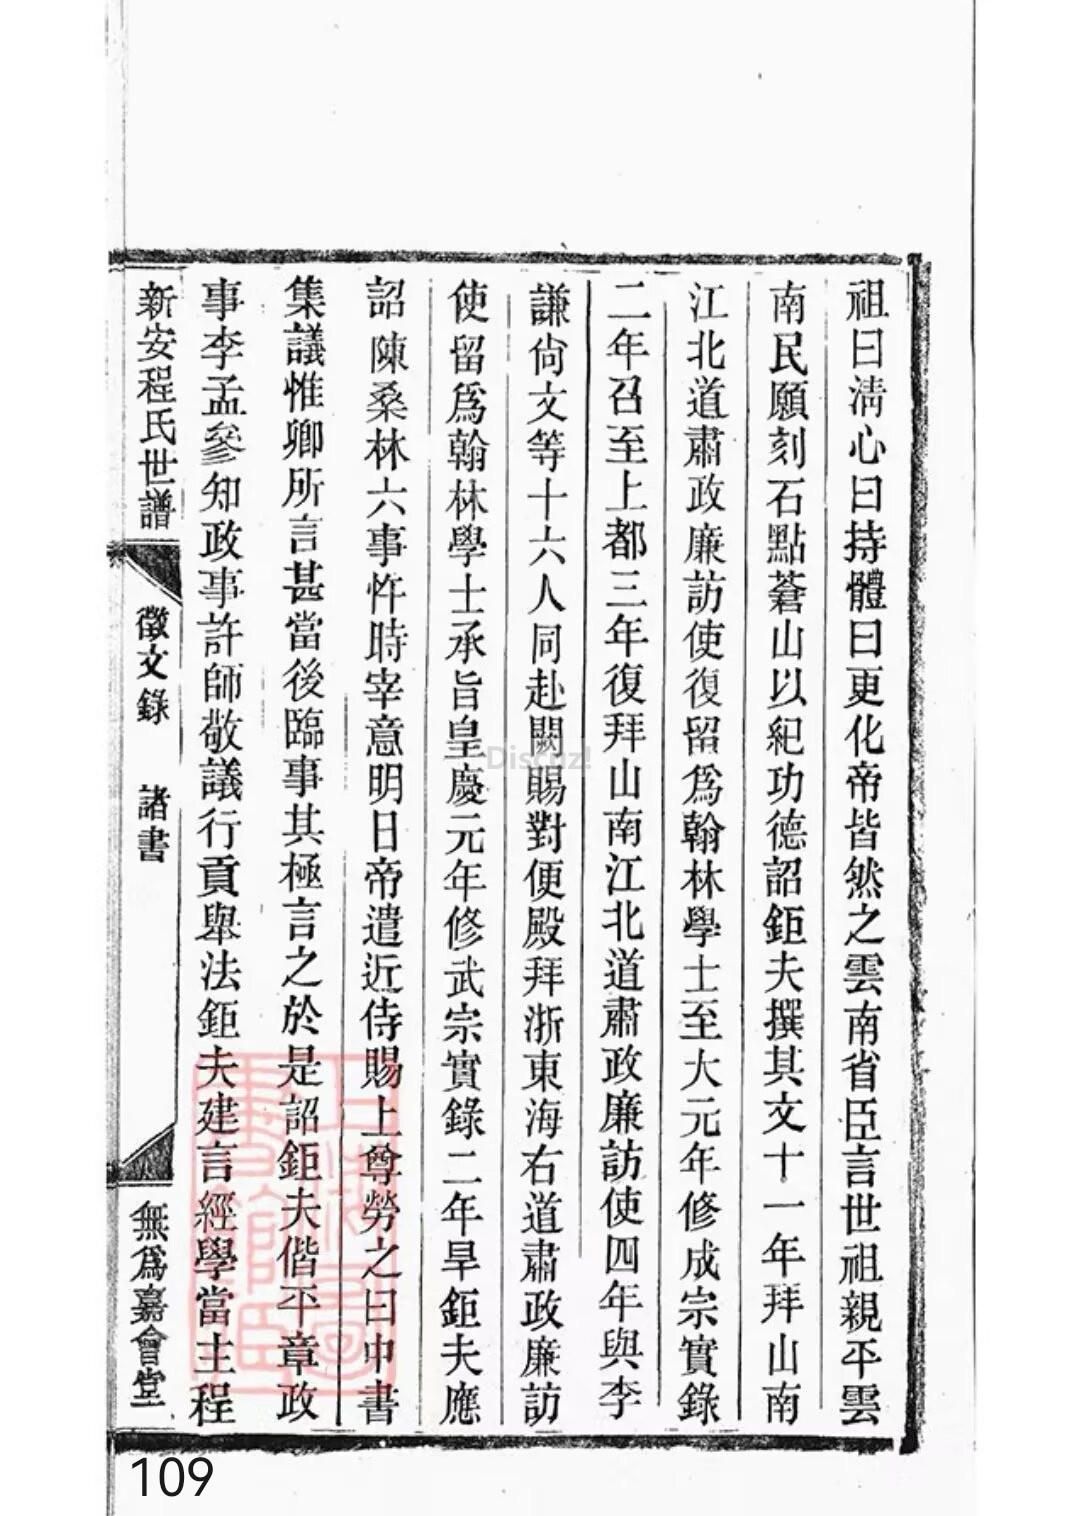 祖曰淸心曰持體曰更化帝皆然之雲南省臣言世祖親平雲
南民願刻石點蒼山以紀功德詔鉅夫撰其文十一年拜山南
江北道肅政廉訪使復留爲翰林學士至大元年修成宗實錄
二年召至上都三年復拜山南江北道肅政廉訪使四年與李
謙尙文等十六人同赴闕賜對便殿拜浙東海右道肅政廉訪
使留爲翰林學士承旨皇慶元年修武宗實錄二年旱鉅夫應
詔陳桑林六事忤時宰意明日帝遣近侍賜上尊勞之曰中書
集議惟卿所言甚當後臨事其極言之於是詔鉅夫偕平章政
事李孟參知政事許師敬議行貢舉法鉅夫建言經學當主程
新安程氏世譜 徵文錄 諸書 無爲嘉會堂
Discuz!
109